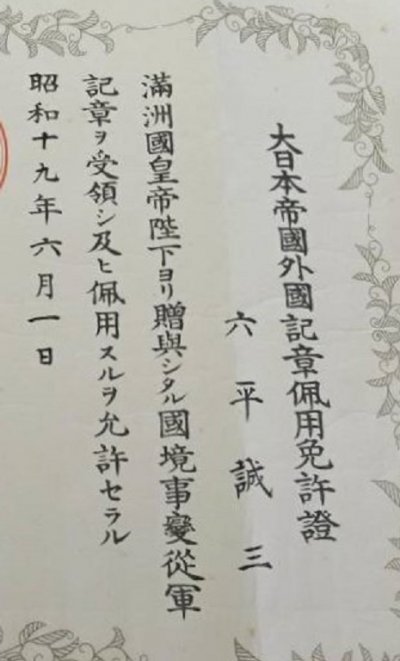 大日本帝國外國記章佩用免許證
六平誠三
滿洲國皇帝陛下ヨリ贈與シタル國境事變從軍
記章ヲ受領シ及ヒ佩用スルヲ允許セラル
昭和十九年六月一日